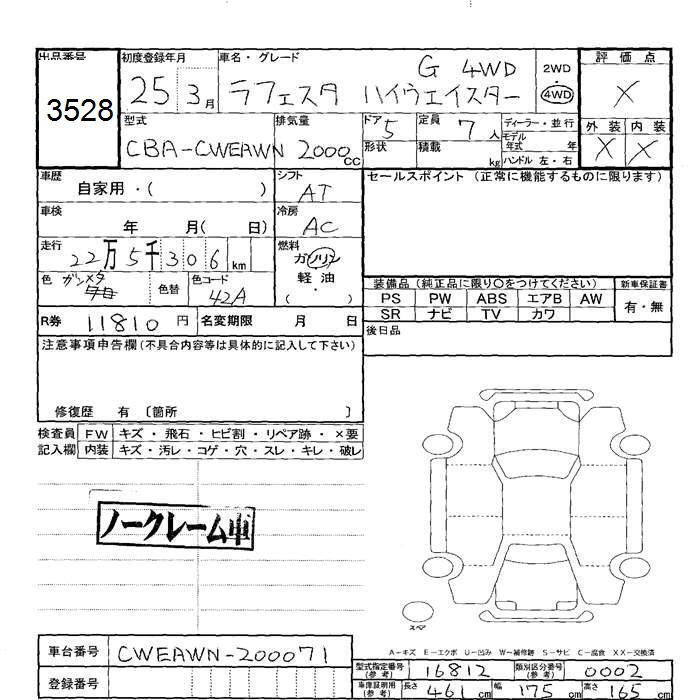 出品番号 初度登録年月 車名・グレード 評価点
3528 25 3月 ラフェスタ ハイウェイスター G 4WD 2WD・4WD X
型式 排気量 ドア 5 定員 7人 ディーラー・並行 外装 内装
CBA-CWEAWN 2000cc 形状 積載 kg モデル年式 年 ハンドル 左・右 X X
車歴 自家用・( ) シフト AT セールスポイント (正常に機能するものに限ります)
車検 年 月( 日) 冷房 AC
走行 22万5千306km 燃料 ガソリン 軽油・( )
色 ガンメタ 色替 色コード 42A 装備品 (純正品に限り○をつけてください) 新車保証書
PS PW ABS エアB AW 有・無
SR ナビ TV カワ
R券 11810円 名変期限 月 日 後日品
注意事項申告欄(不具合内容等は具体的に記入して下さい)
修復歴 有 〔箇所 〕
検査員 FW キズ・飛石・ヒビ割・リペア跡・×要
記入欄 内装 キズ・汚レ・コゲ・穴・スレ・キレ・破レ
ノークレーム車
スペア
A-キズ E-エクボ U-凹み W-補修跡 S-サビ C-腐食 XX-交換済
車台番号 CWEAWN-200071 型式指定番号(参考) 16812 類別区分番号(参考) 0002
登録番号 車庫証明用(参考) 長さ 461cm 幅 175cm 高さ 165cm